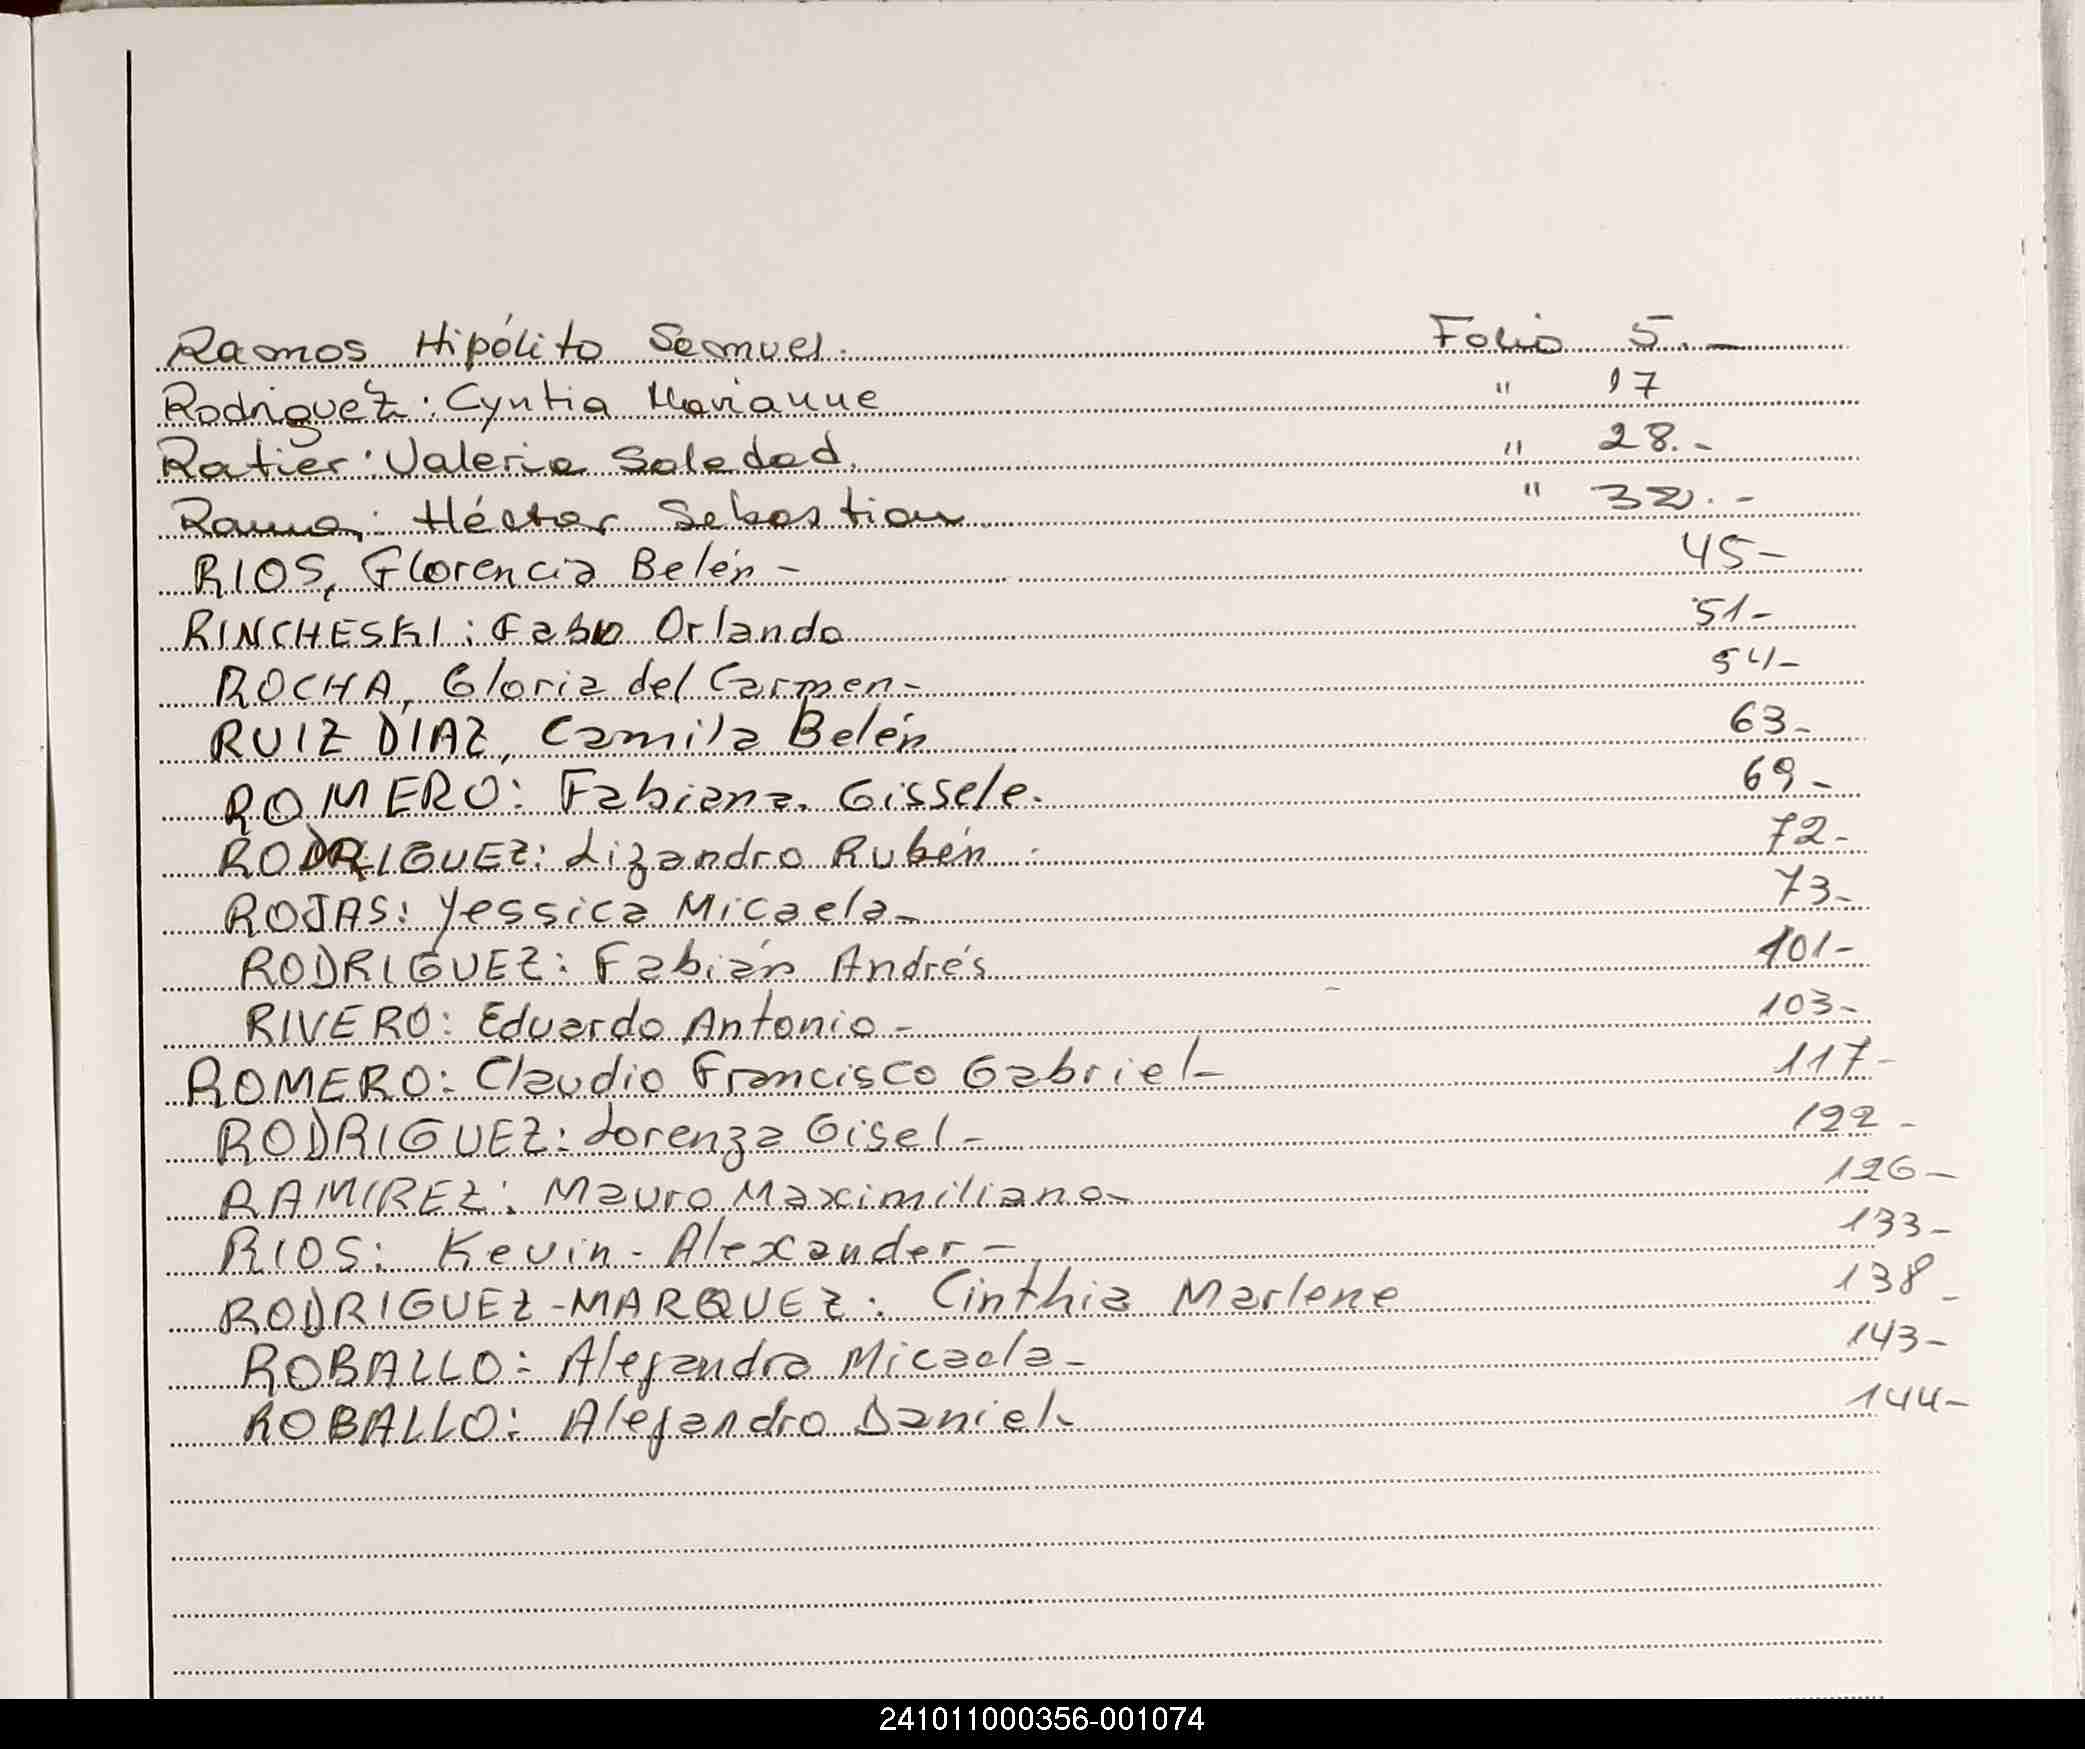 Ramos Hipólito Samuel. Folio 5.-
Rodriguez: Cyntia Marianne " 17
Ratier: Valeria Soledad. " 28.-
Rama: Héctor Sebastian " 32.-
RIOS, Florencia Belén - 45-
RINCHESKI: Fabio Orlando 51-
ROCHA, Gloria del Carmen- 54-
RUIZ DÍAZ, Camila Belén 63-
ROMERO: Fabiana. Gissele. 69-
RODRIGUEZ: Lizandro Rubén. 72-
ROJAS: Yessica Micaela- 73-
RODRIGUEZ: Fabián Andrés 101-
RIVERO: Eduardo Antonio- 103-
ROMERO: Claudio Francisco Gabriel- 117-
RODRIGUEZ: Lorenza Gisel- 122-
RAMIREZ: Mauro Maximiliano- 126-
RIOS: Kevin- Alexander- 133-
RODRIGUEZ-MARQUEZ: Cinthia Marlene 138-
ROBALLO: Alejandra Micaela- 143-
ROBALLO: Alejandro Daniel- 144-
241011000356-001074